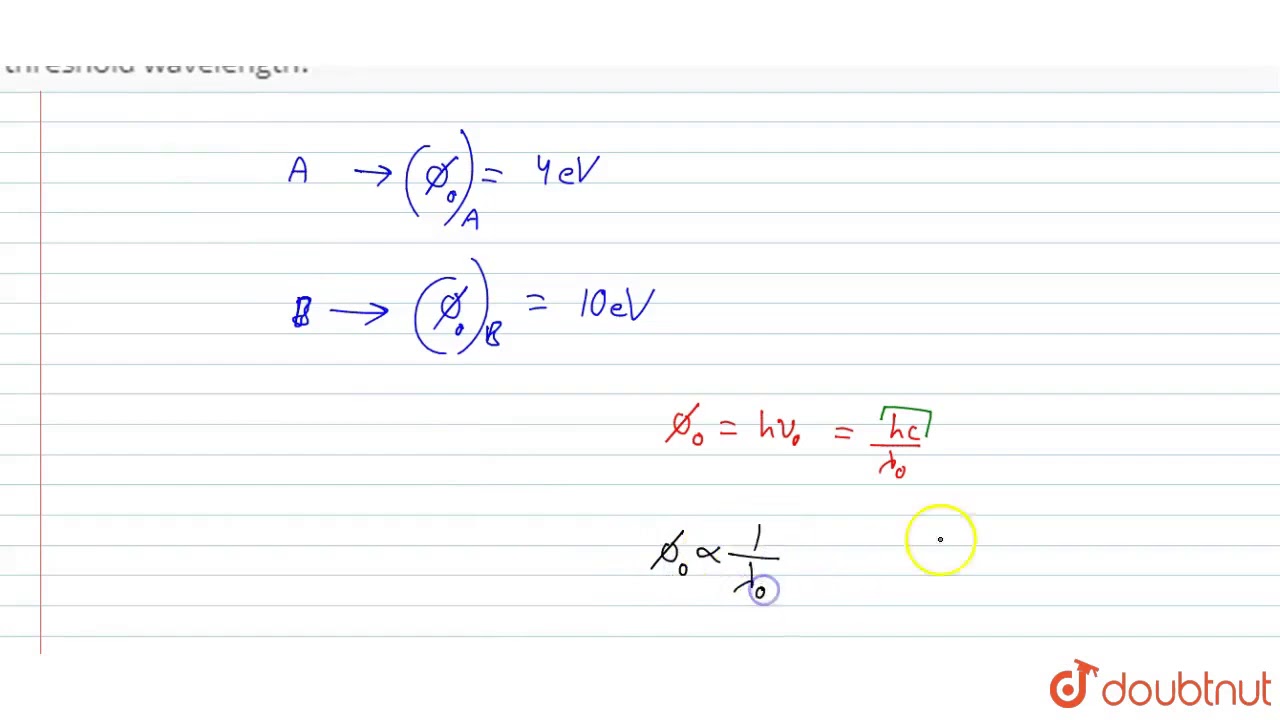 threshold wavelength.
A → (ϕ₀)_A = 4 eV
B → (ϕ₀)_B = 10 eV
ϕ₀ = hν₀ = hc/λ₀
ϕ₀ ∝ 1/λ₀
doubtnut